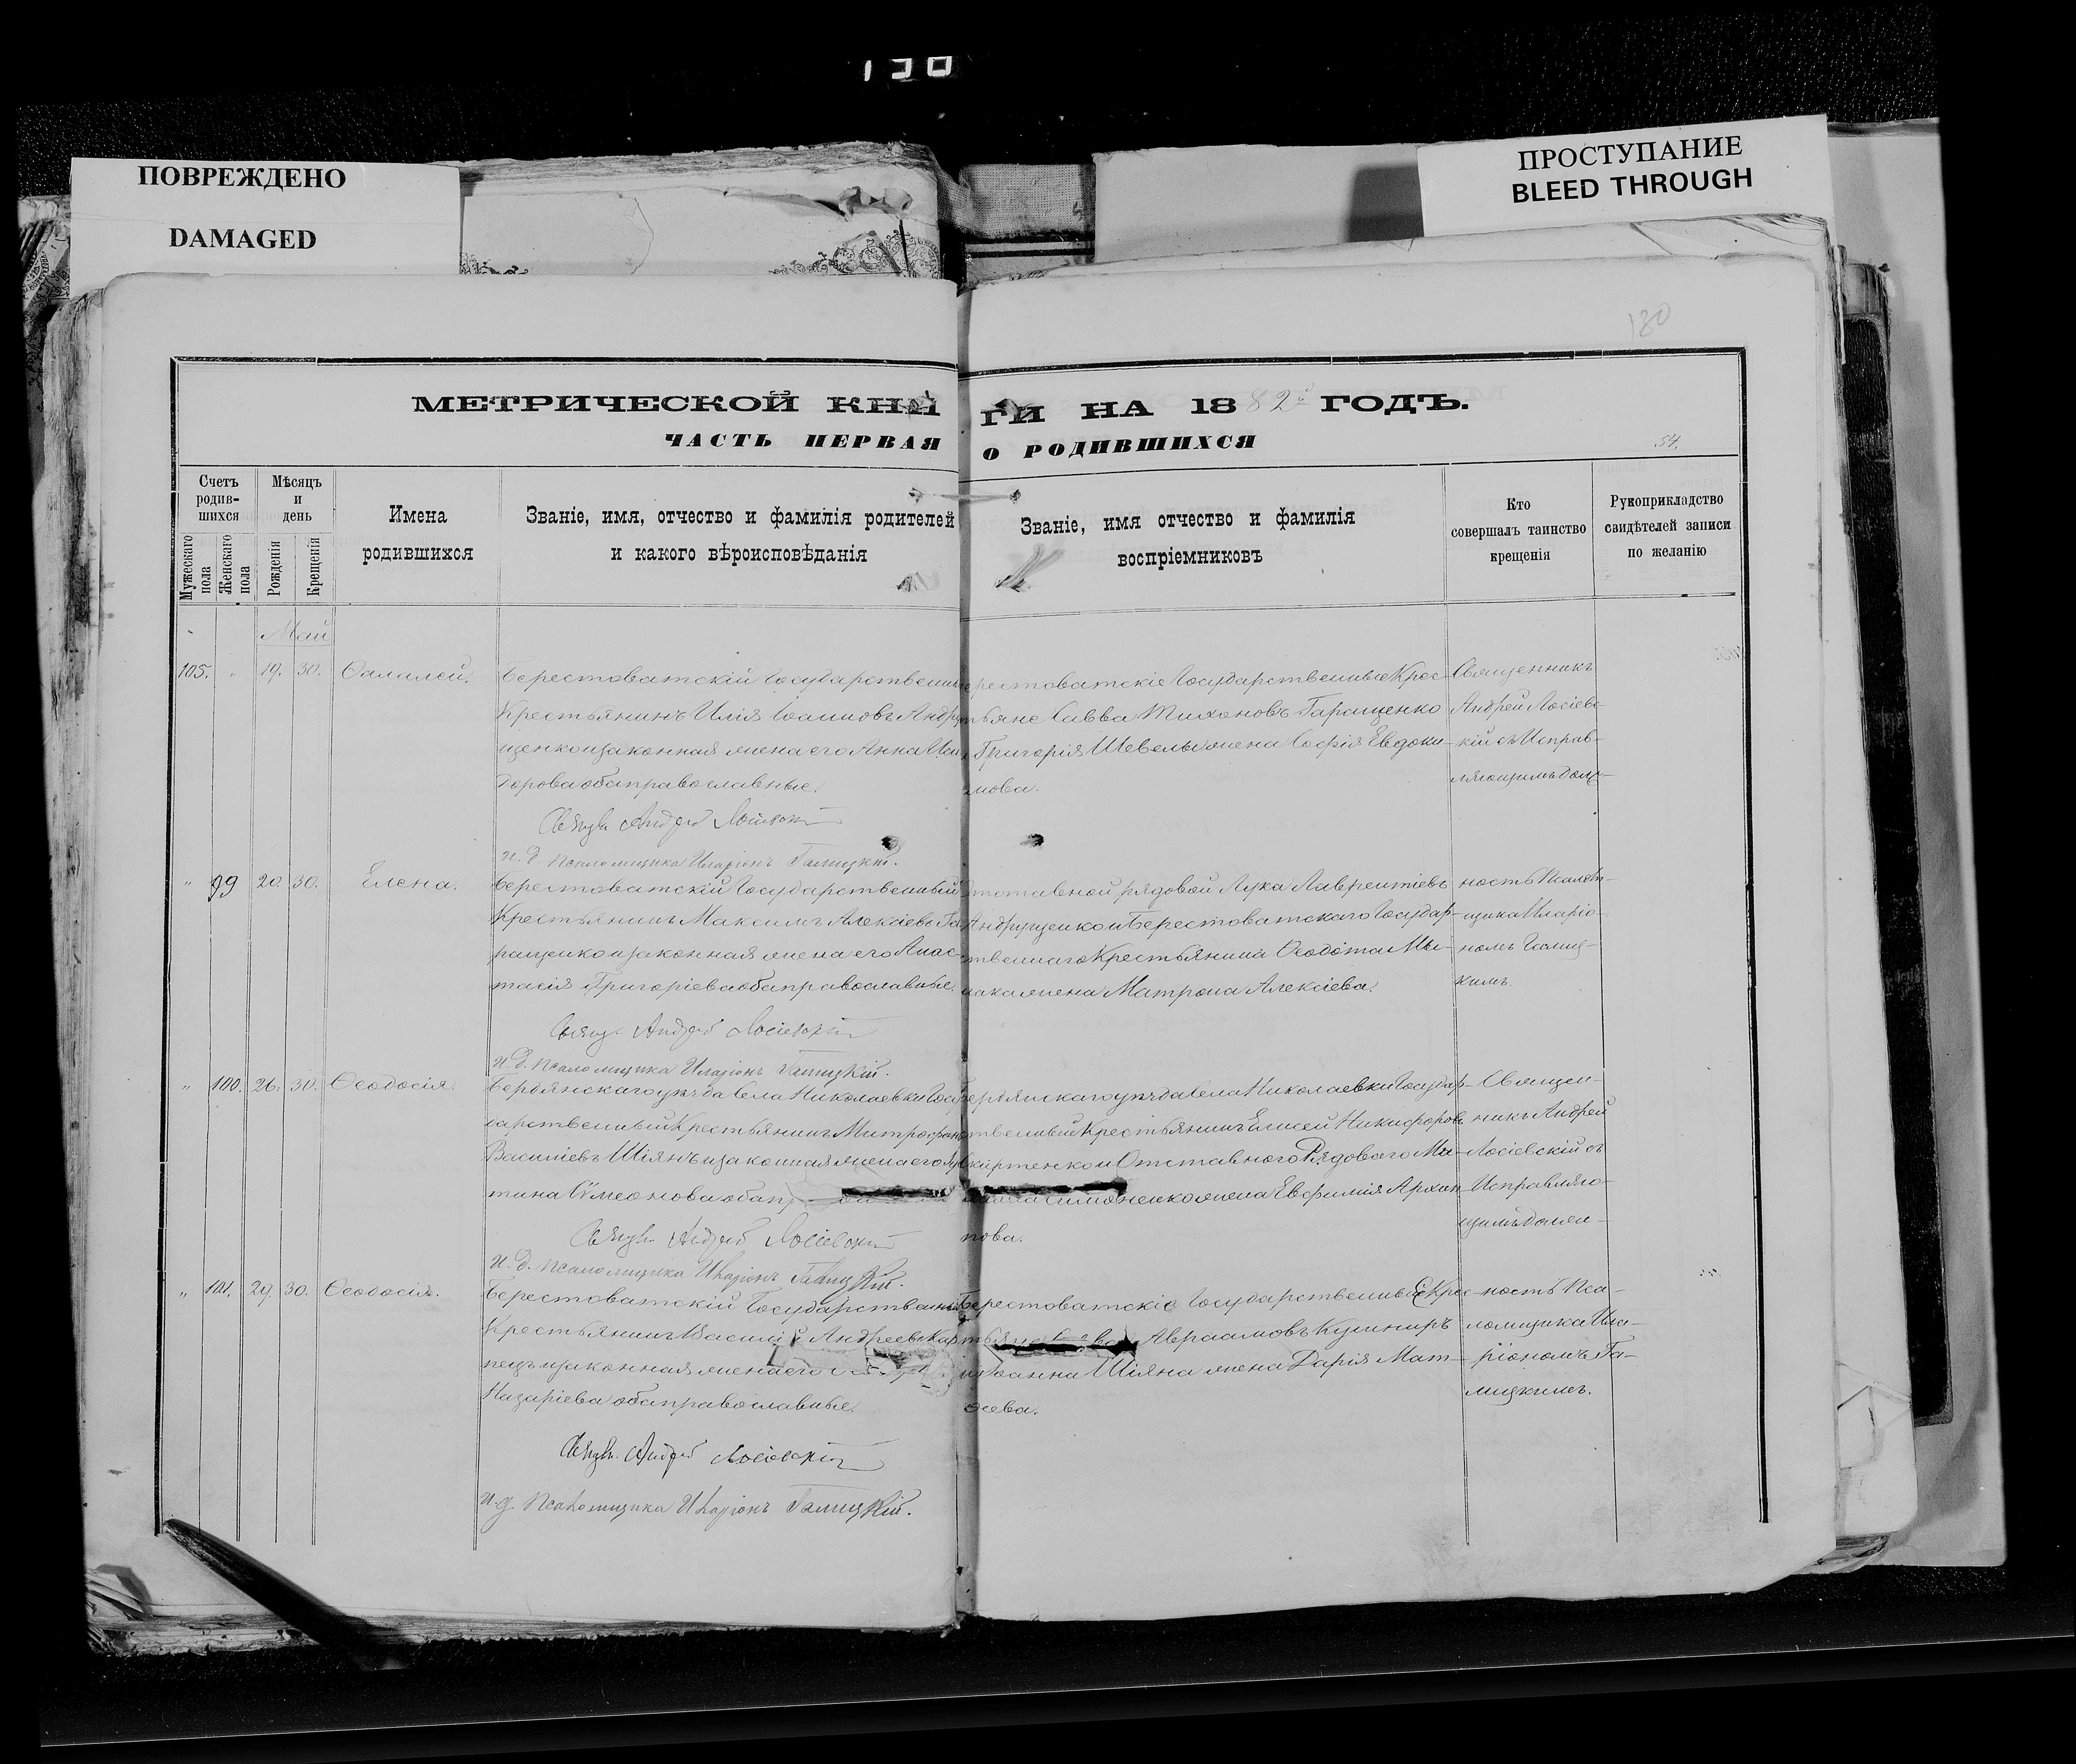 130
ПОВРЕЖДЕНО
DAMAGED
ПРОСТУПАНИЕ
BLEED THROUGH
130
МЕТРИЧЕСКОЙ КНИГИ НА 1882й ГОДЪ.
ЧАСТЬ ПЕРВАЯ О РОДИВШИХСЯ
54.
Счетъ родив-шихся
Мужескаго пола
Женскаго пола
Мѣсяцъ и день
Рожденія
Крещенія
Имена родившихся
Званіе, имя, отчество и фамилія родителей
и какого вѣроисповѣданія
Званіе, имя отчество и фамилія
воспріемниковъ
Кто
совершалъ таинство
крещенія
Рукоприкладство
свидѣтелей записи
по желанію
Май
105. " 19. 30. Ѳалалей.
Берестоватскій Государственный
Крестьянинъ Илія Іоанновъ Андру
щенко и законная жена его Анна Иси
дорова оба православные.
Свящ. Андрей Лосіевскій
и. д. псаломщика Иларіонъ Галицкій.
Берестоватскіе Государственные Крес-
тьяне Савва Тихоновъ Гаращенко
и Григорія Шевелы жена Софія Евдоки-
мова.
Священникъ
Андрей Лосіевс-
кій съ Исправ-
ляющимъ долж-
" 99 20. 30. Елена.
Берестоватскій Государственный
Крестьянинъ Максимъ Алексіевъ Га
ращенко и законная жена его Анас-
тасія Григоріева оба православные.
Свящ. Андрей Лосіевскій
и. д. псаломщика Иларіонъ Галицкій.
Отставной рядовой Лука Лаврентіевъ
Андрущенко и Берестоватскаго Государ-
ственнаго Крестьянина Ѳеодота Мы-
жена Матрона Алексіева.
ность Псалом-
щика Иларіо-
номъ Галиц-
кимъ.
" 100. 26. 30. Ѳеодосія.
Бердянскаго уѣзда Села Николаевки Госу
дарственный Крестьянинъ Митрофанъ
Василіевъ Шіянъ и законная жена его
тина Сѵмеонова оба
Свящ. Андрей Лосіевскій
и. д. псаломщика Иларіонъ Галицкій.
Бердянскаго уѣзда Села Николаевки Государ-
ственный Крестьянинъ Елисей Никифоровъ
и Отставного Рядоваго Ми-
жена Евфимія Архип-
пова.
Священ-
никъ Андрей
Лосіевскій съ
Исправляю-
щимъ долж-
" 101. 29. 30. Ѳеодосія.
Берестоватскій Государственный
Крестьянинъ Василій Андреевъ
законная жена его
Назаріева оба православные.
Свящ. Андрей Лосіевскій
и. д. псаломщика Иларіонъ Галицкій.
Берестоватскіе Государственные Крес-
Авраамовъ Кушниръ
и Іоанна Шіяна жена Дарія Мат-
ѳеева.
ность Пса-
ломщика Ила-
ріономъ Га-
лицкимъ.